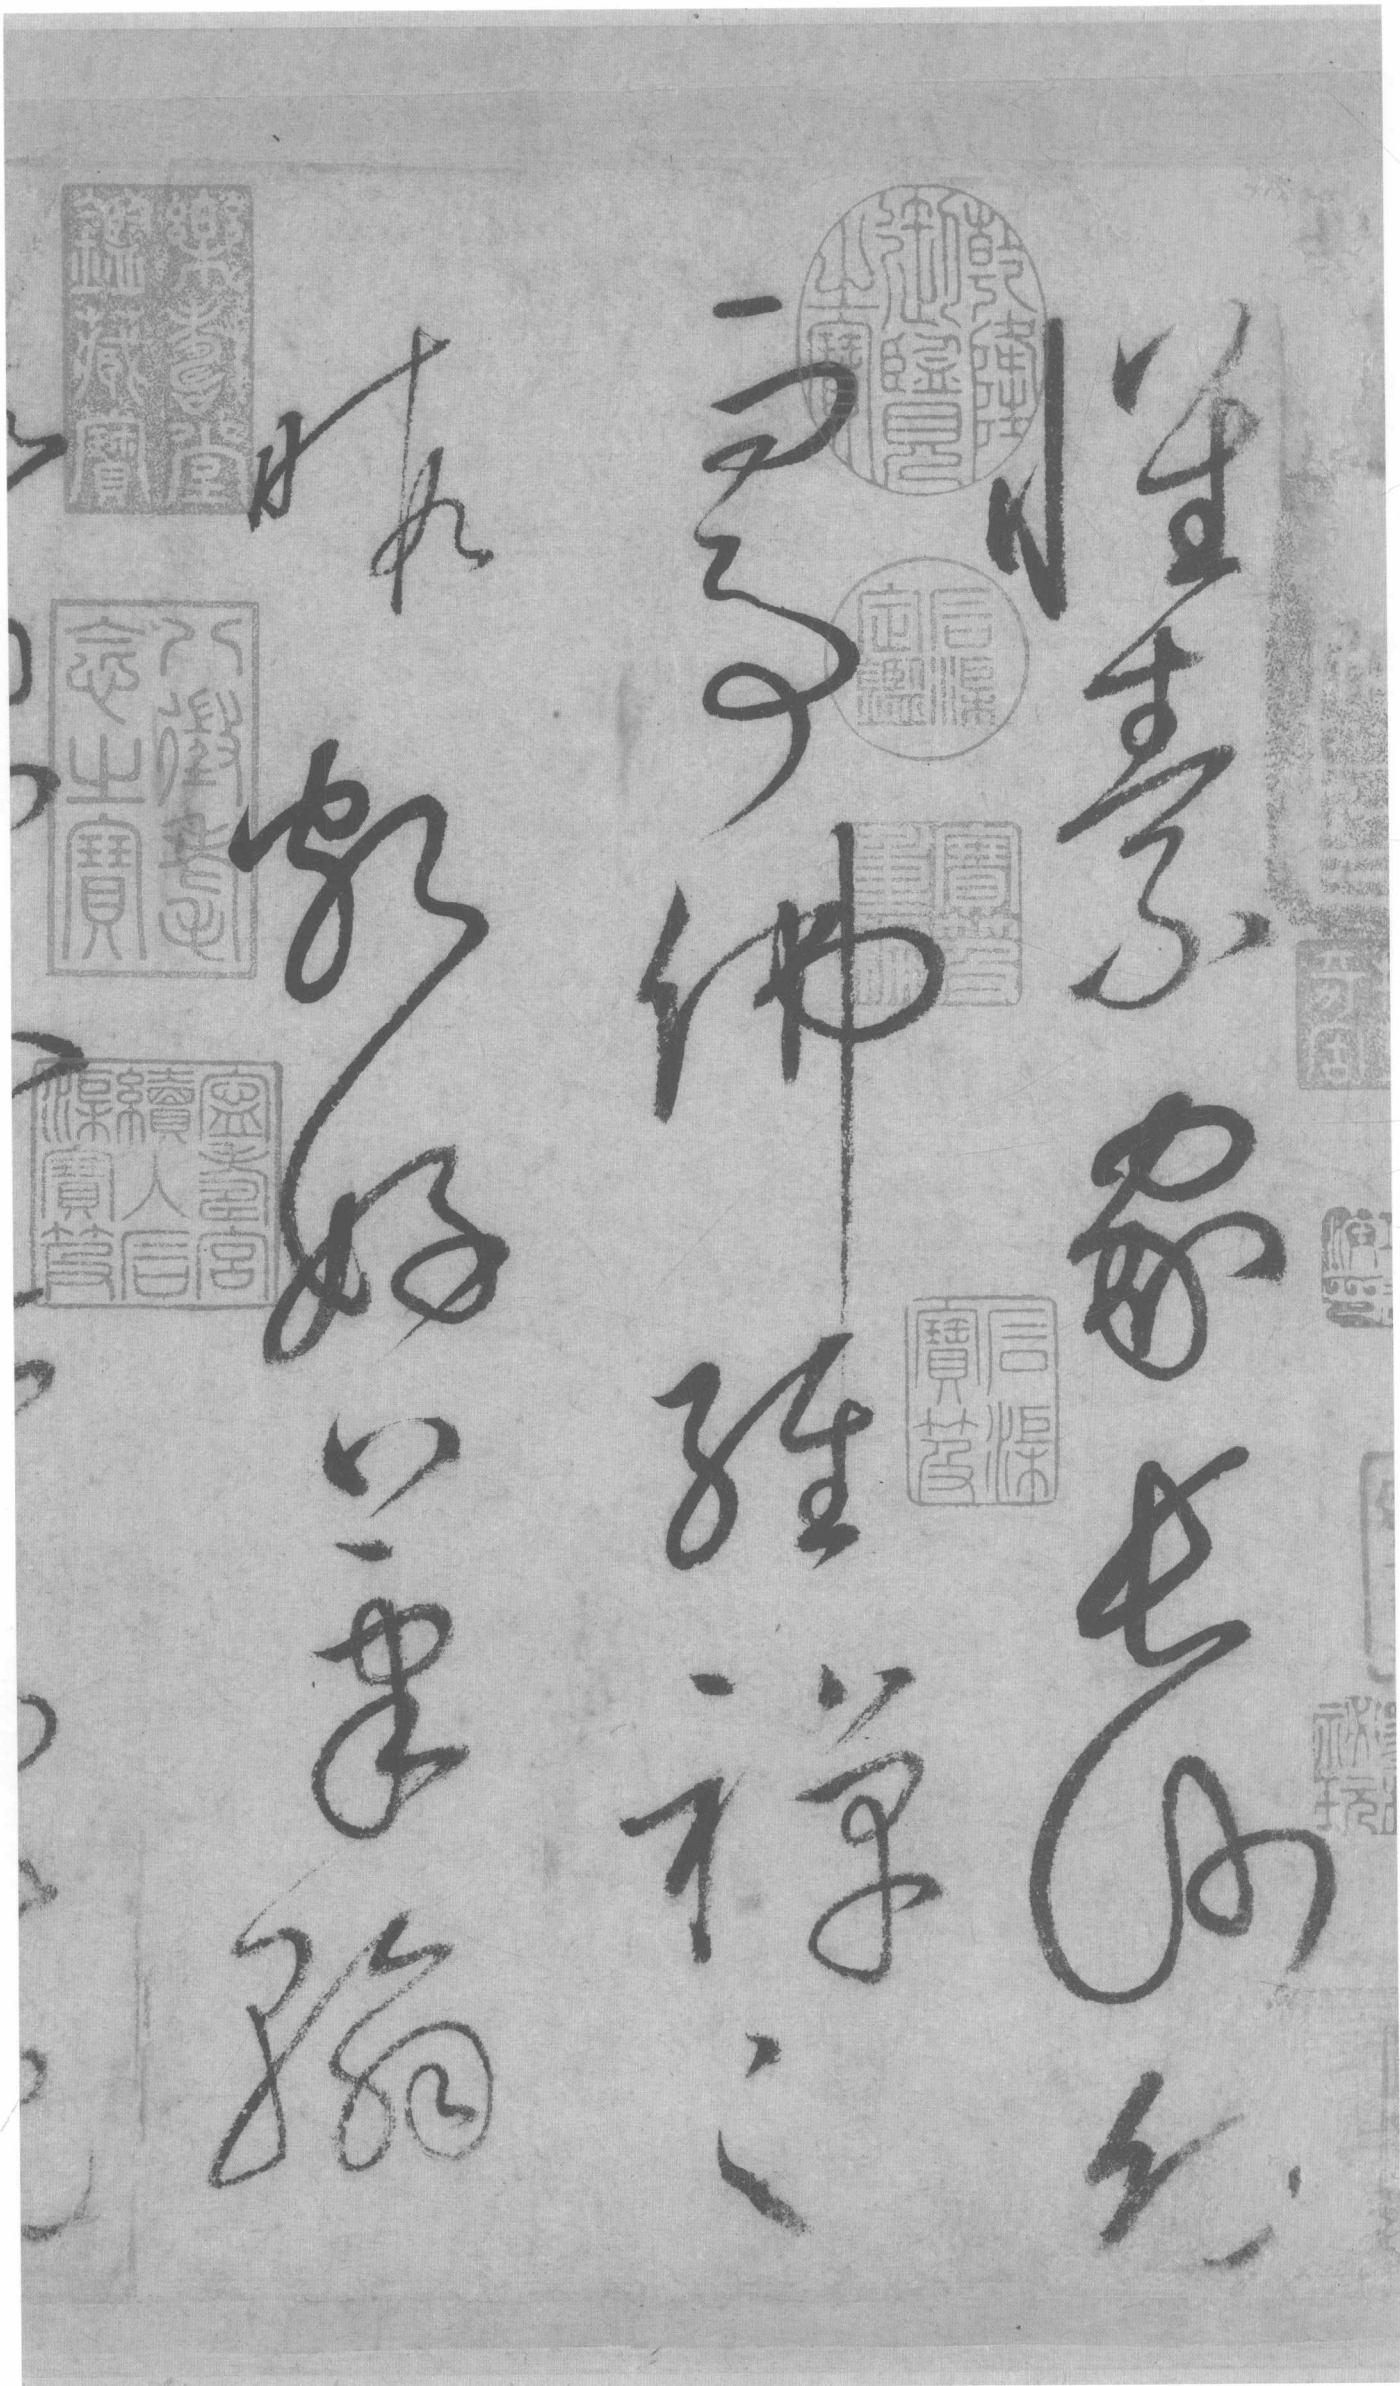 懷素家長沙幼
而事佛經禪之
暇頗好筆翰
乾隆御覽之寶
石渠定鑑
寶笈重編
石渠寶笈
樂壽堂鑑藏寶
八徵耄念之寶
寧壽宮續入石渠寶笈